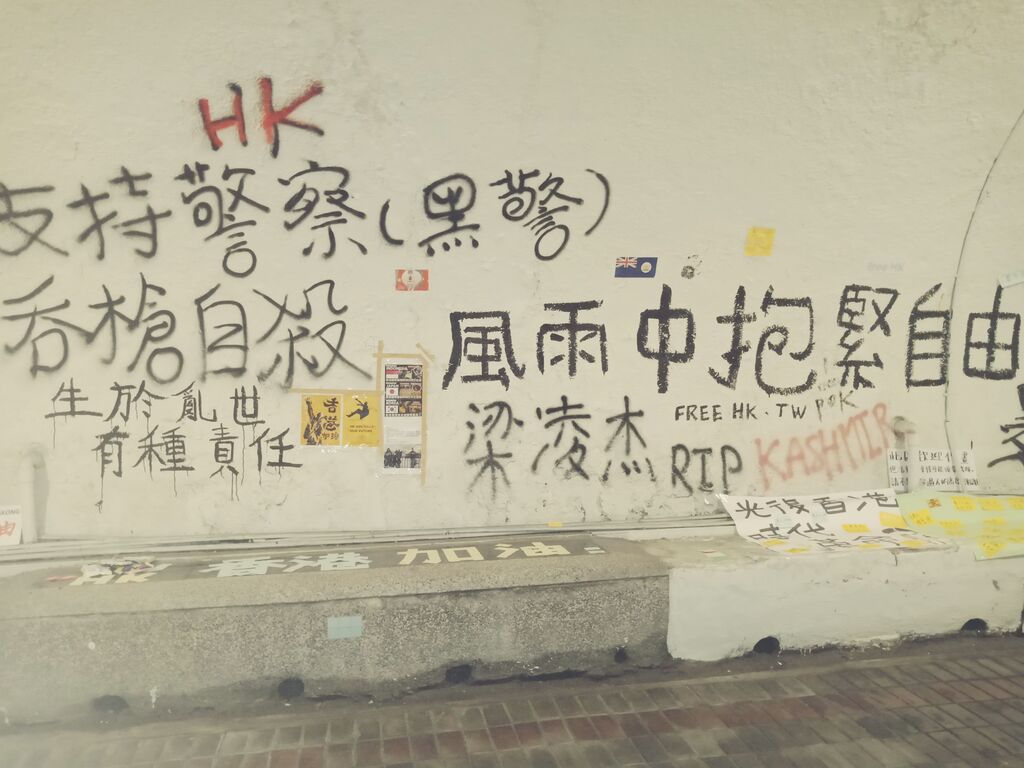 HK
支持警察(黑警)
吞槍自殺
生於亂世
有種責任
香港
加油
風雨中抱緊自由
free HK
FREE HK. TW
梁凌杰 RIP
KASHMIR
光復香港
時代革命
香港加油